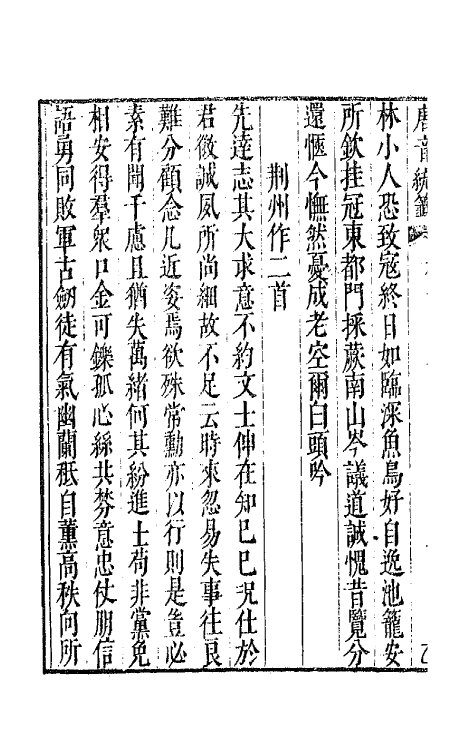 唐音統籤
林小人恐致寇終日如臨深魚鳥好自逸池籠安
所欽挂冠東都門採蕨南山岑議道誠愧昔覽分
還愜今憮然憂成老空爾白頭吟
荆州作二首
先達志其大求意不約文士伸在知己已況仕於
君微誠夙所尚細故不足云時來忽易失事往良
難分顧念凡近姿焉欲殊常勳亦以行則是豈必
素有聞千慮且猶失萬緒何其紛進士苟非黨免
相安得羣衆口金可鑠孤心絲共棼意忠仗朋信
語勇同敗軍古劒徒有氣幽蘭秪自薰高秩向所